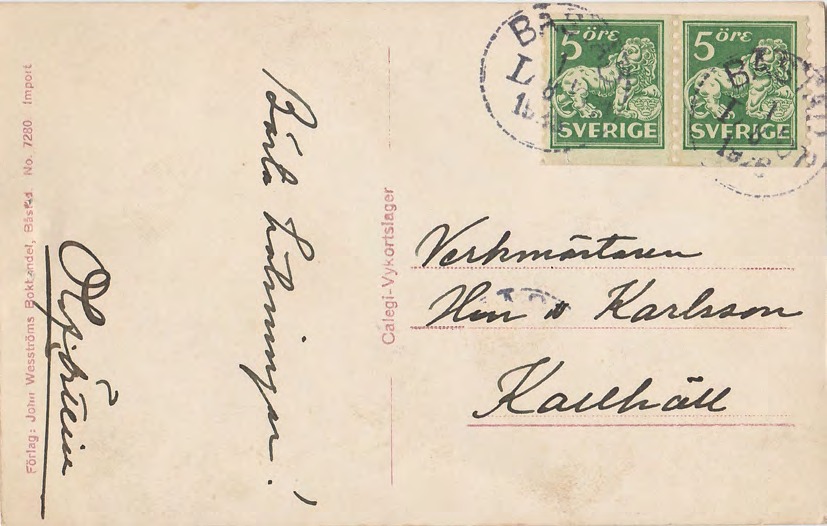 Förlag: John Wesströms Bokhandel, Båstad. No. 7280 Import
Bästa hälsningar!
Calegi-Vykortslager
BÅSTAD
5 öre
SVERIGE
5 öre
SVERIGE
BÅSTAD
Verkmästaren
Herr Karlsson
Kallhäll